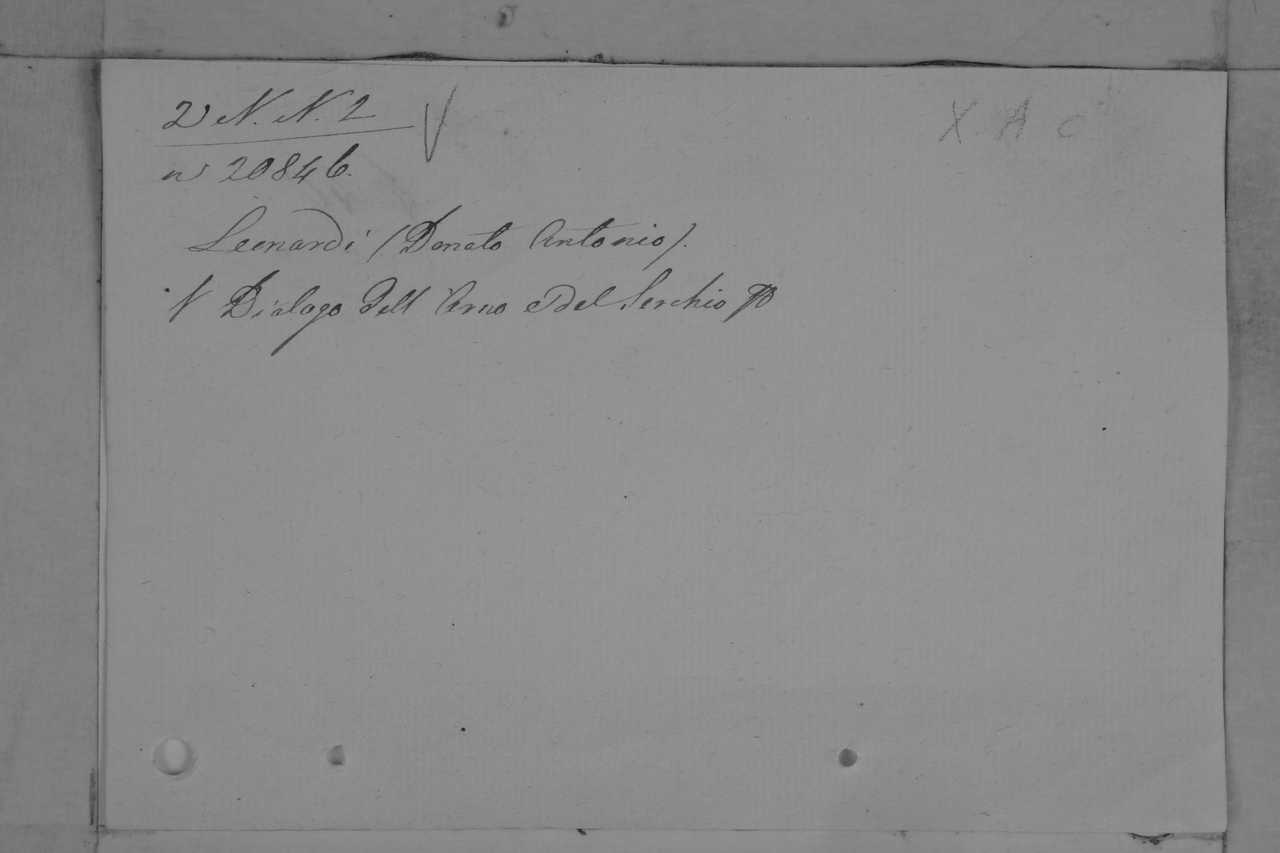 2 N. N. 2 X A C
n 20846.
Leonardi (Donato Antonio).
Dialogo dell Arno e del Serchio